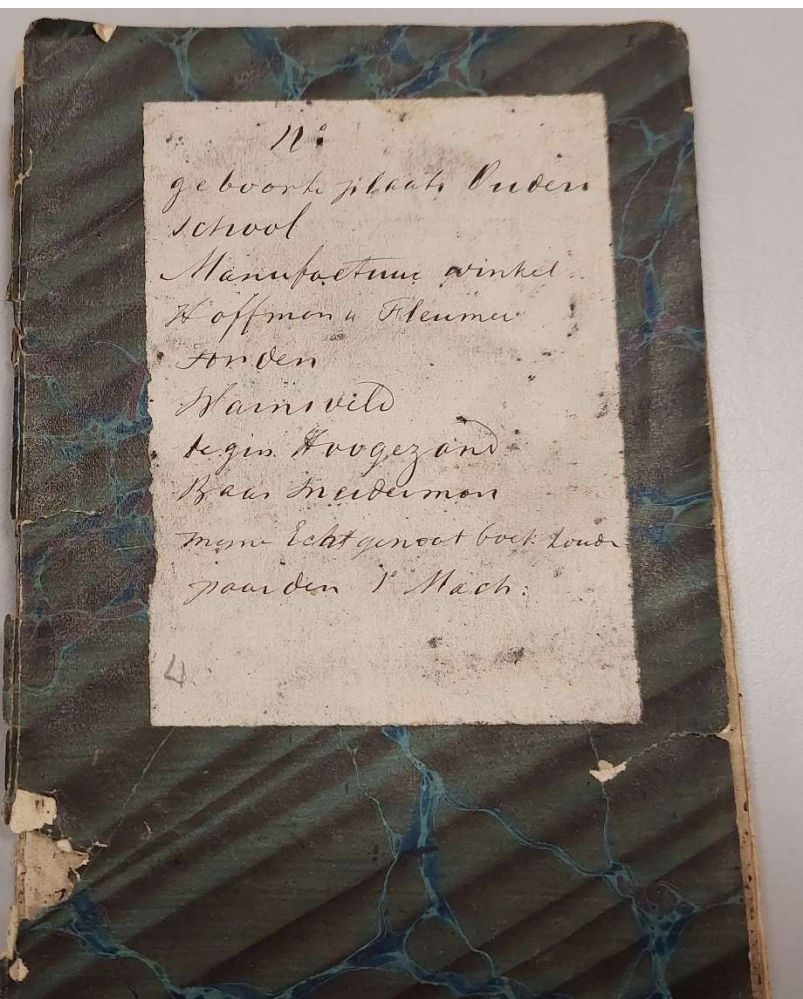 No
geboorte plaats Ouders
school
Manufactuur winkel
Hoffman u Fleumer
tonden
Warnsveld
begin Hoogezand
Baas Sneiderman
myne Echtgenoot boek houder
paarden 1e Mach:
4